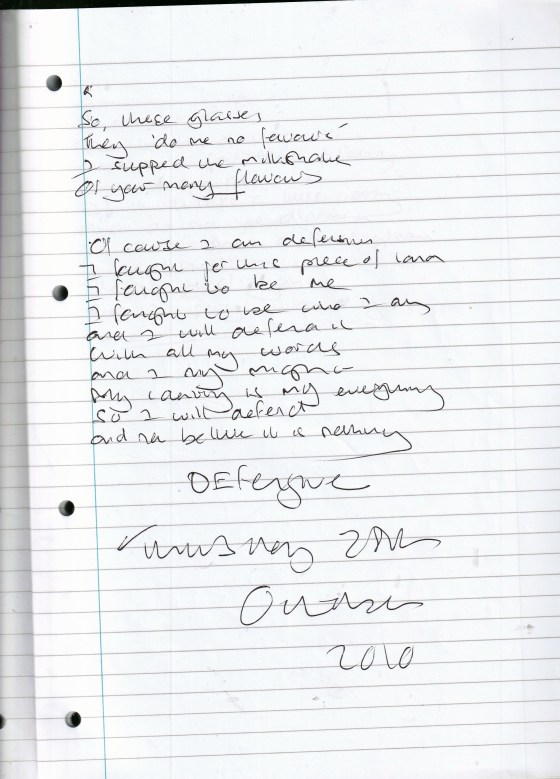 So, these glasses,
They do me no favours
I supped the milkshake
Of your many flavours
Of course I am defensive
I fought for this piece of land
I fought to be me
I fought to be who I am
and I will defend it
With all my words
and my might
My is my everything
So I will defend
and not believe it is nothing
DEfensive
Thursday 28th
October
2010